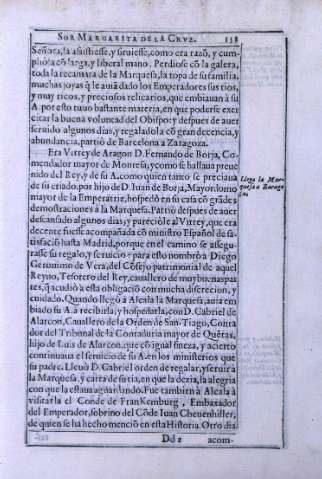 SOR MARGARITA DE LA CRVZ. 158
Señora, la asistiesse, y siruiesse, como era razõ, y cum-
pliòla cõ larga, y liberal mano. Perdiose cõ la galera,
toda la recamara de la Marquesa, la ropa de su familia,
muchas joyas q̃ le auiã dado los Emperadores sus tios,
y muy ricos, y preciosos relicarios, que embiauan à su
A. por esto tuuo bastante materia, en que poderse exer
citar la buena voluntad del Obispo: y despues de auer
seruido algunos dias, y regaladola cõ gran decencia, y
abundancia, partiò de Barcelona a Zaragoza.
Era Virrey de Aragon D. Fernando de Borja, Co-
mendador mayor de Montesa, y como se hallaua preue
nido del Rey, y de su A. como quien tanto se preciaua
de su criado, por hijo de D. Iuan de Borja, Mayordomo
mayor de la Emperatriz, hospedò en su casa cõ grãdes
demostraciones à la Marquesa. Partiò despues de auer
descansado algunos dias, y pareciòle al Virrey, que era
decente fuesse acompañada cõ ministro Español de sa-
tisfaciõ hasta Madrid, porque en el camino se assegu-
rasse su regalo, y seruicio: para esto nombrò a Diego
Geronimo de Vera, del Cõsejo patrimonial de aquel
Reyno, Tesorero del Rey, cauallero de muy buenas par-
tes, q̃ acudiò a esta obligaciõ con mucha discrecion, y
cuidado. Quando llegò à Alcala la Marquesa, auia em
biado su A. à recibirla, y hospedarla, con D. Gabriel de
Alarcon, Cauallero de la Orden de San-Tiago, Conta
dor del Tribunal de la Contaduria mayor de Quẽtas,
hijo de Luis de Alarcon, que cõ igual fineza, y acierto
continuaua el seruicio de su A. en los ministerios que
su padre. Lleuò D. Gabriel orden de regalar, y seruir a
la Marquesa, y carta de su tia, en que la dezia, la alegria
con que la estaua aguardando. Fue tambien à Alcala à
visitarla el Conde de Frankemburg, Embaxador
del Emperador, sobrino del Cõde Iuan Cheuenhiller,
de quien se ha hecho menciõ en esta Historia. Otro dia
Dd 2 acom-
Llega la Mar-
quesa a Zarago